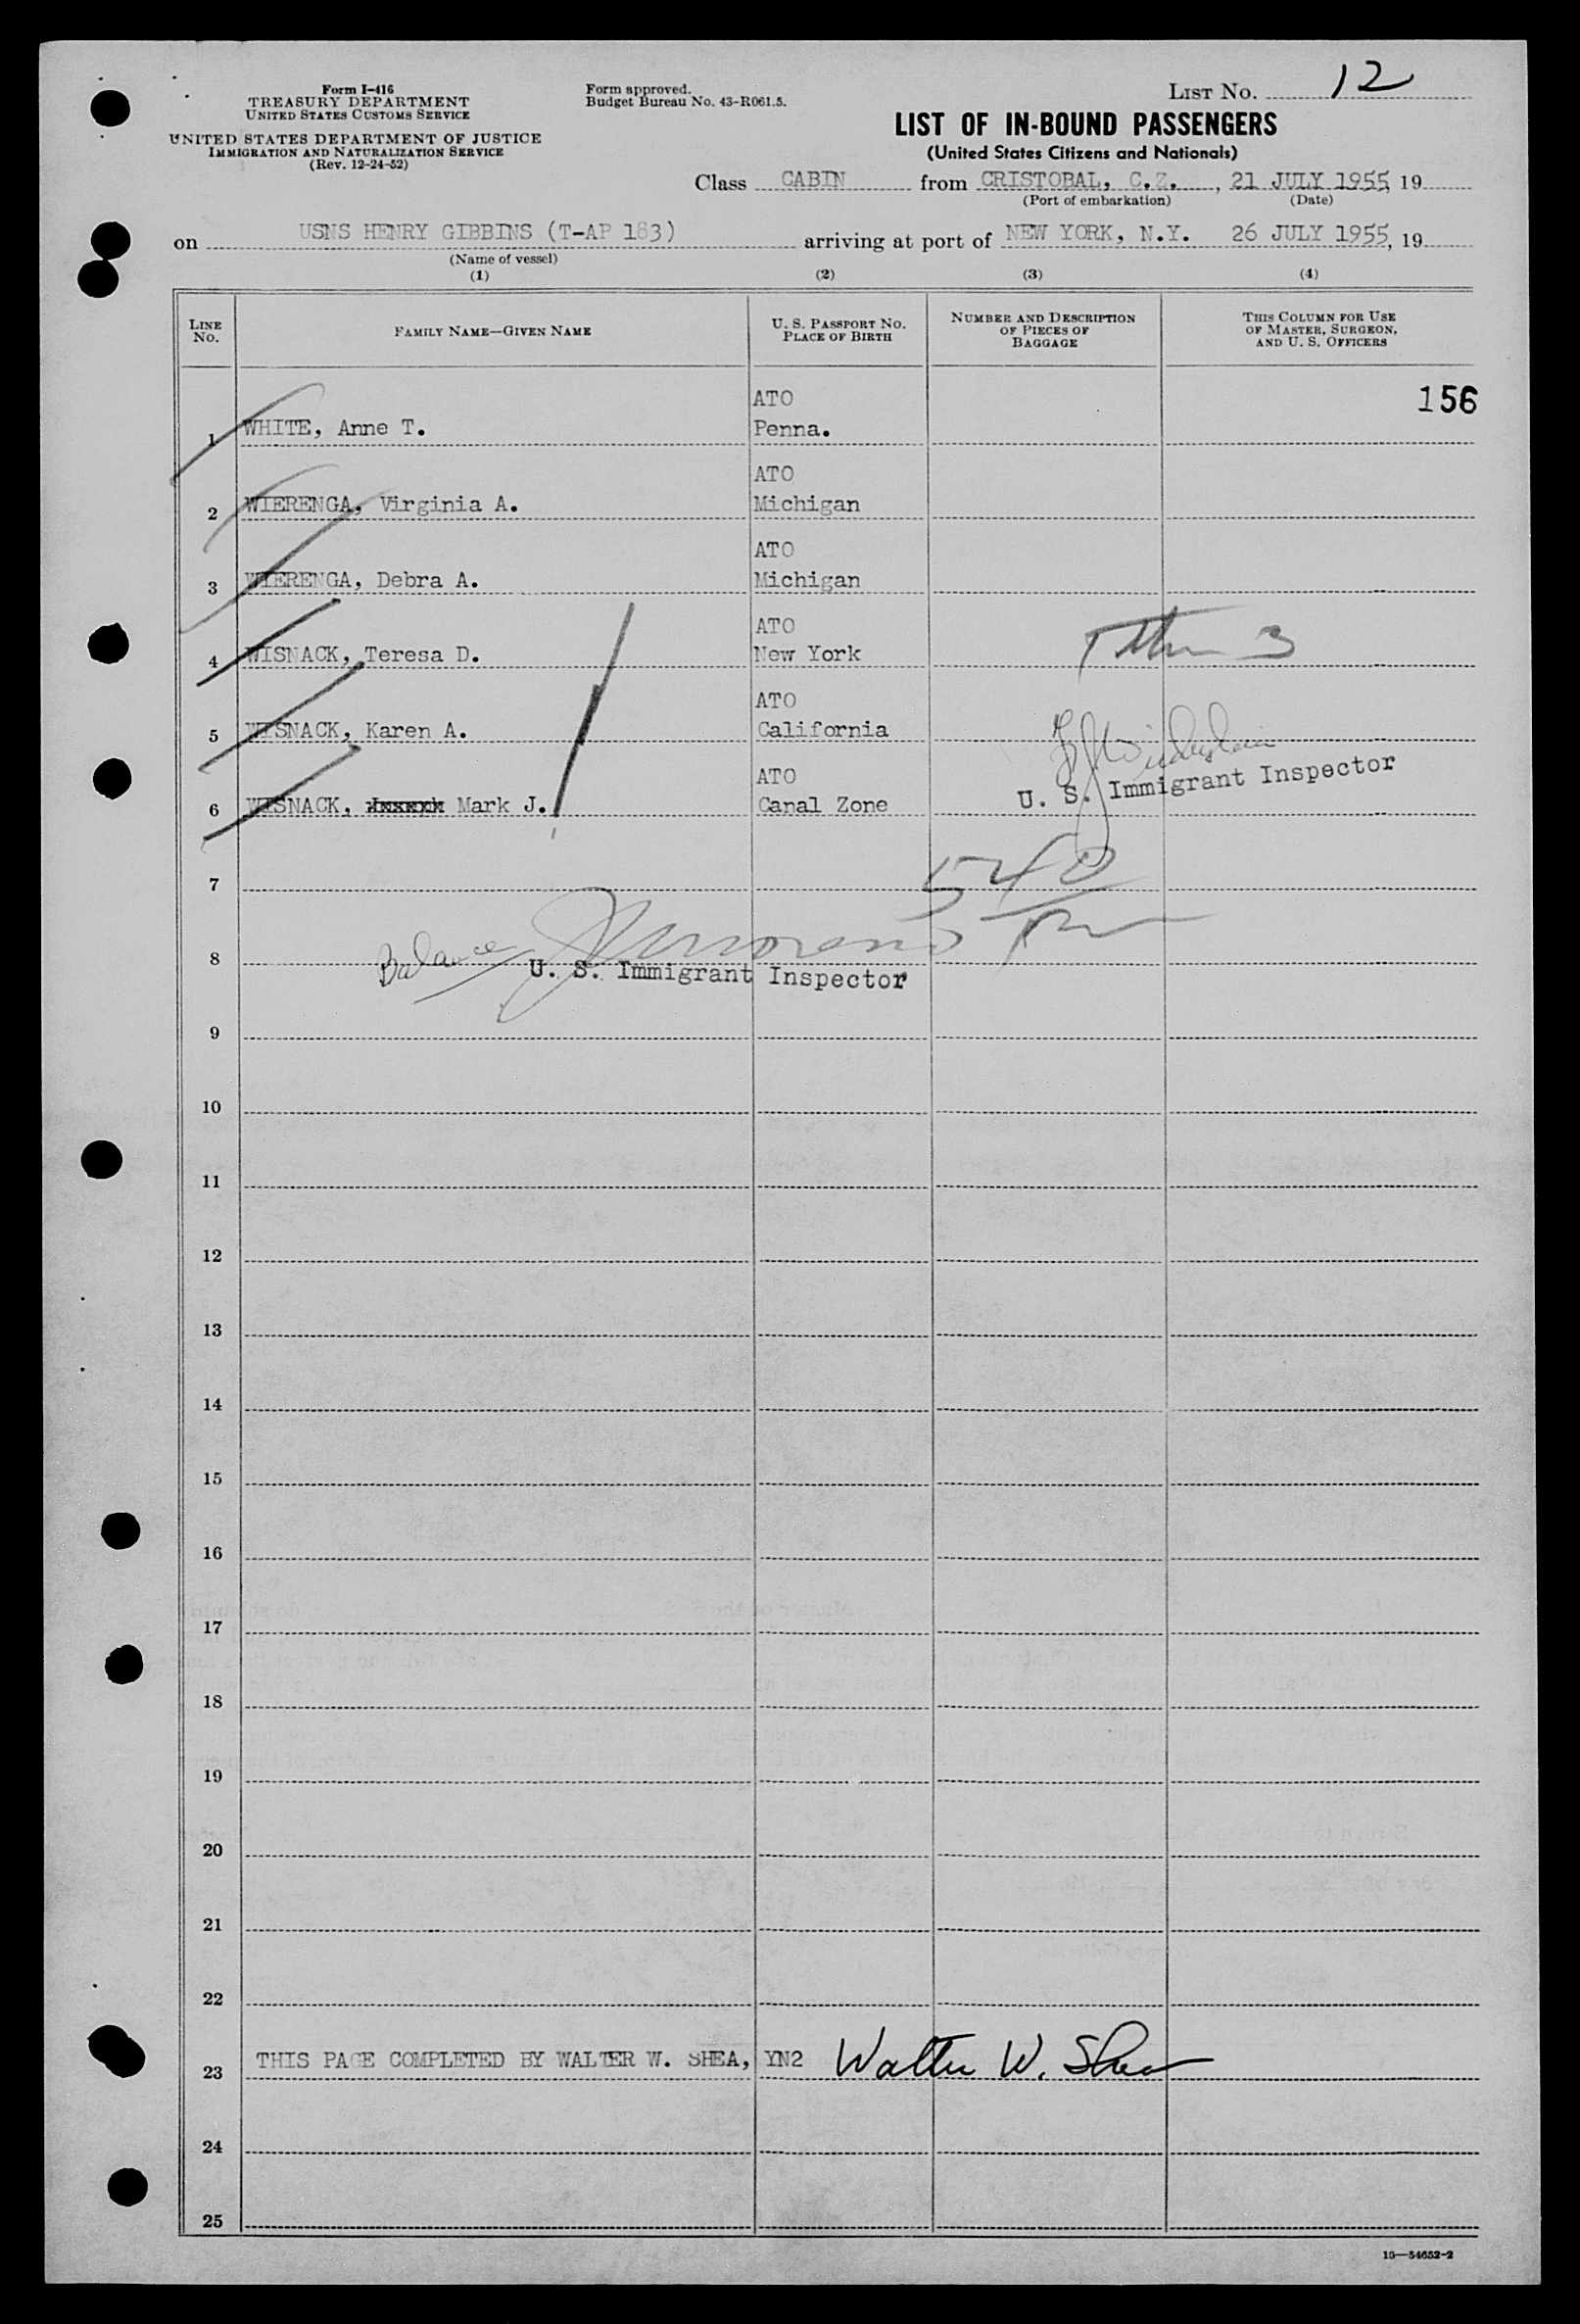 Form I-416
TREASURY DEPARTMENT
UNITED STATES CUSTOMS SERVICE
UNITED STATES DEPARTMENT OF JUSTICE
IMMIGRATION AND NATURALIZATION SERVICE
(Rev. 12-24-52)
Form approved.
Budget Bureau No. 43-R061.5.
LIST NO. 12
LIST OF IN-BOUND PASSENGERS
(United States Citizens and Nationals)
Class CABIN from CRISTOBAL, C.Z., 21 JULY 1955, 19
(Port of embarkation) (Date)
on USNS HENRY GIBBINS (T-AP 183) arriving at port of NEW YORK, N.Y. 26 JULY 1955, 19
(Name of vessel)
(1) (2) (3) (4)
LINE NO. FAMILY NAME—GIVEN NAME U. S. PASSPORT NO. PLACE OF BIRTH NUMBER AND DESCRIPTION OF PIECES OF BAGGAGE THIS COLUMN FOR USE OF MASTER, SURGEON, AND U. S. OFFICERS
ATO 156
1 WHITE, Anne T. Penna.
ATO
2 WIERENGA, Virginia A. Michigan
ATO
3 WIERENGA, Debra A. Michigan
ATO
4 WISNACK, Teresa D. New York 3
ATO
5 WISNACK, Karen A. California
ATO
U. S. Immigrant Inspector
6 WISNACK, Mark J. Canal Zone
7 540
8 Balance
U. S. Immigrant Inspector
9
10
11
12
13
14
15
16
17
18
19
20
21
22
23 THIS PAGE COMPLETED BY WALTER W. SHEA, YN2 Walter W. Shea
24
25
16—54652-2